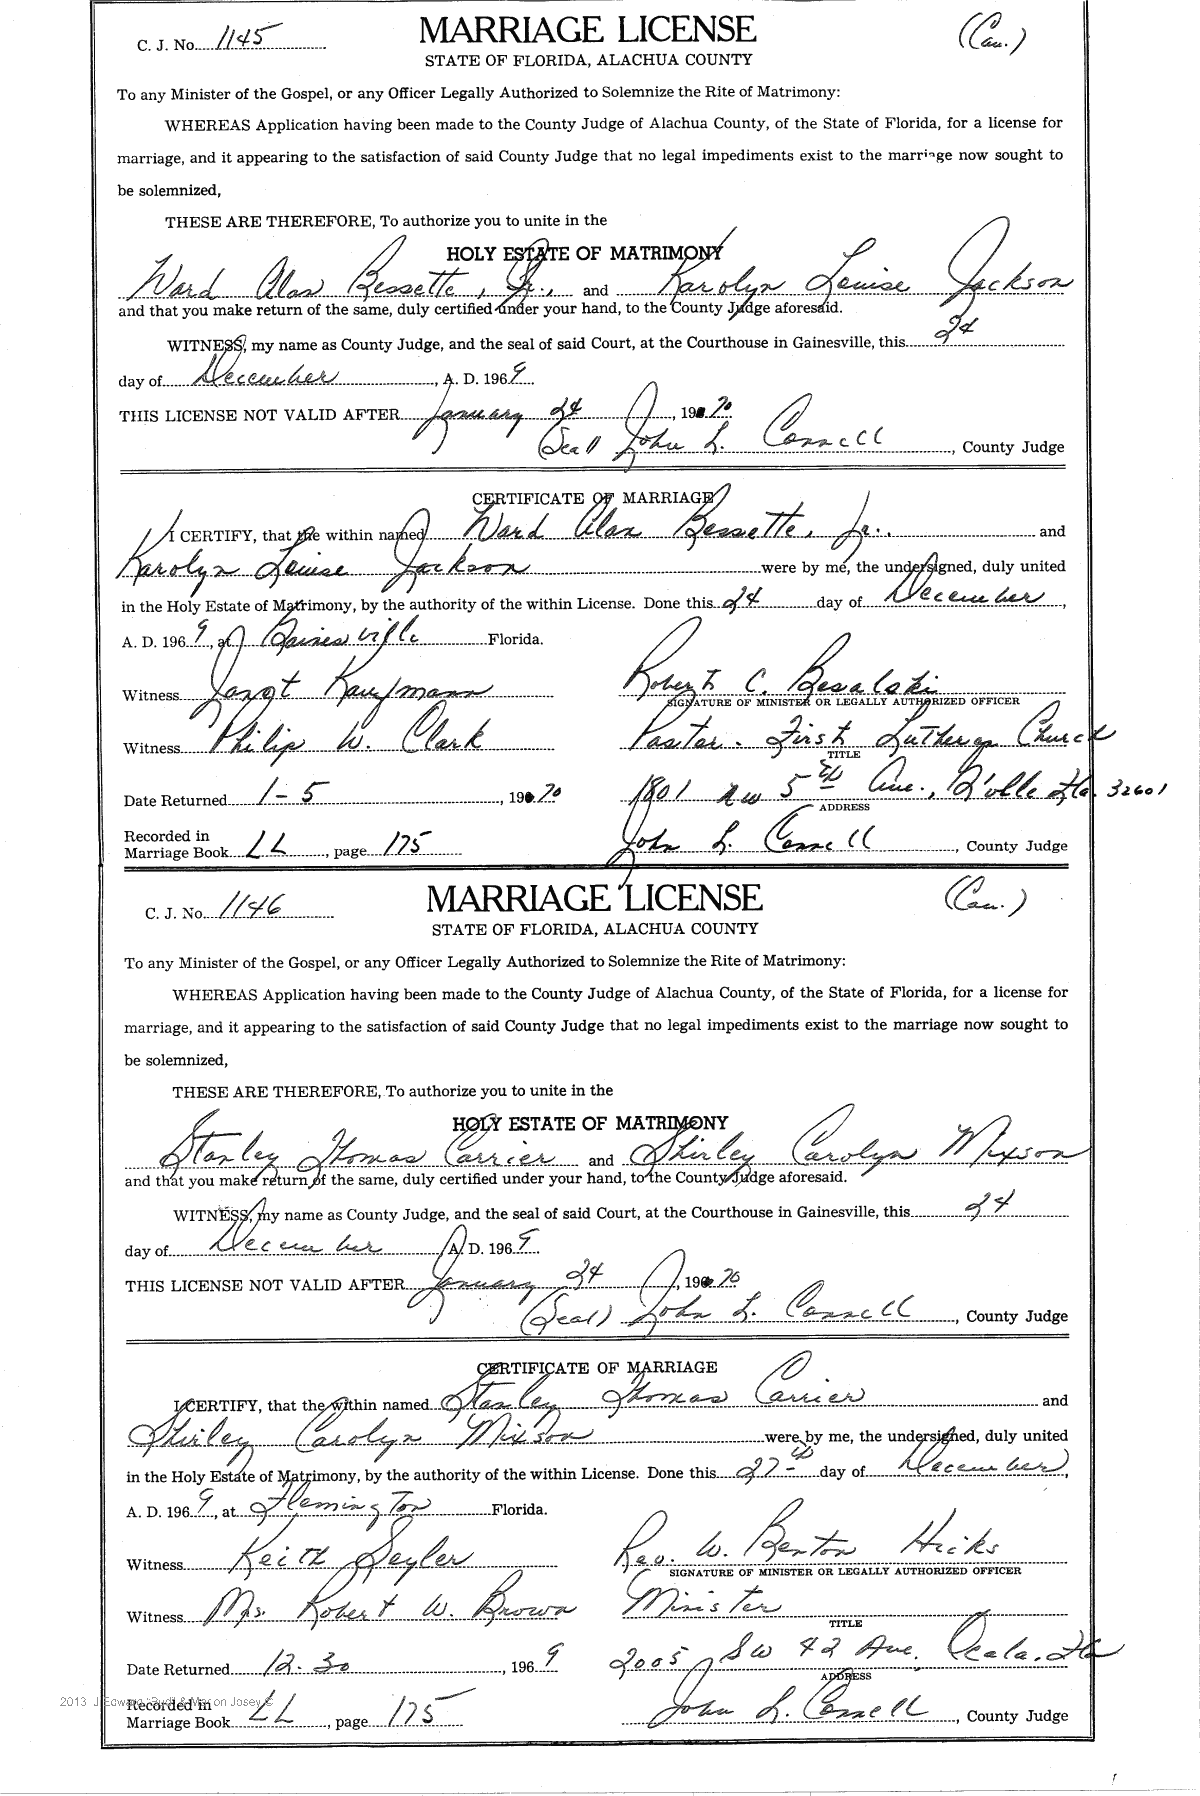 C. J. No. 1145 MARRIAGE LICENSE (Cau.)
STATE OF FLORIDA, ALACHUA COUNTY
To any Minister of the Gospel, or any Officer Legally Authorized to Solemnize the Rite of Matrimony:
WHEREAS Application having been made to the County Judge of Alachua County, of the State of Florida, for a license for
marriage, and it appearing to the satisfaction of said County Judge that no legal impediments exist to the marriage now sought to
be solemnized,
THESE ARE THEREFORE, To authorize you to unite in the
HOLY ESTATE OF MATRIMONY
Ward Alan Bessette, Jr., and Karolyn Louise Jackson
and that you make return of the same, duly certified under your hand, to the County Judge aforesaid.
WITNESS, my name as County Judge, and the seal of said Court, at the Courthouse in Gainesville, this 24
day of December, A. D. 1969
THIS LICENSE NOT VALID AFTER January 24, 1970
(Seal) John L. Connell, County Judge
CERTIFICATE OF MARRIAGE
I CERTIFY, that the within named Ward Alan Bessette, Jr. and
Karolyn Louise Jackson were by me, the undersigned, duly united
in the Holy Estate of Matrimony, by the authority of the within License. Done this 24 day of December,
A. D. 1969, at Gainesville Florida.
Witness Kaufmann Robert C. Besalski
SIGNATURE OF MINISTER OR LEGALLY AUTHORIZED OFFICER
Witness Philip W. Clark Pastor - First Lutheran Church
TITLE
Date Returned 1-5, 1970 1801 NW 5th Ave., G'ville Fla. 32601
ADDRESS
Recorded in
Marriage Book LL, page 175 John L. Connell, County Judge
C. J. No. 1146 MARRIAGE LICENSE (Cau.)
STATE OF FLORIDA, ALACHUA COUNTY
To any Minister of the Gospel, or any Officer Legally Authorized to Solemnize the Rite of Matrimony:
WHEREAS Application having been made to the County Judge of Alachua County, of the State of Florida, for a license for
marriage, and it appearing to the satisfaction of said County Judge that no legal impediments exist to the marriage now sought to
be solemnized,
THESE ARE THEREFORE, To authorize you to unite in the
HOLY ESTATE OF MATRIMONY
Stanley Thomas Carrier and Shirley Carolyn Mixson
and that you make return of the same, duly certified under your hand, to the County Judge aforesaid.
WITNESS, my name as County Judge, and the seal of said Court, at the Courthouse in Gainesville, this 24
day of December A. D. 1969
THIS LICENSE NOT VALID AFTER January 24, 1970
(Seal) John L. Connell, County Judge
CERTIFICATE OF MARRIAGE
I CERTIFY, that the within named Stanley Thomas Carrier and
Shirley Carolyn Mixson were by me, the undersigned, duly united
in the Holy Estate of Matrimony, by the authority of the within License. Done this 27th day of December,
A. D. 1969, at Flemington Florida.
Witness Keith Seyler Rev. W. Benton Hicks
SIGNATURE OF MINISTER OR LEGALLY AUTHORIZED OFFICER
Witness Mrs. Robert W. Brown Minister
TITLE
Date Returned 12-30, 1969 2005 SW 42 Ave. Ocala, Fla
ADDRESS
2013 J Edward "Budd" & Marion Josey ©
Recorded in
Marriage Book LL, page 175 John L. Connell, County Judge